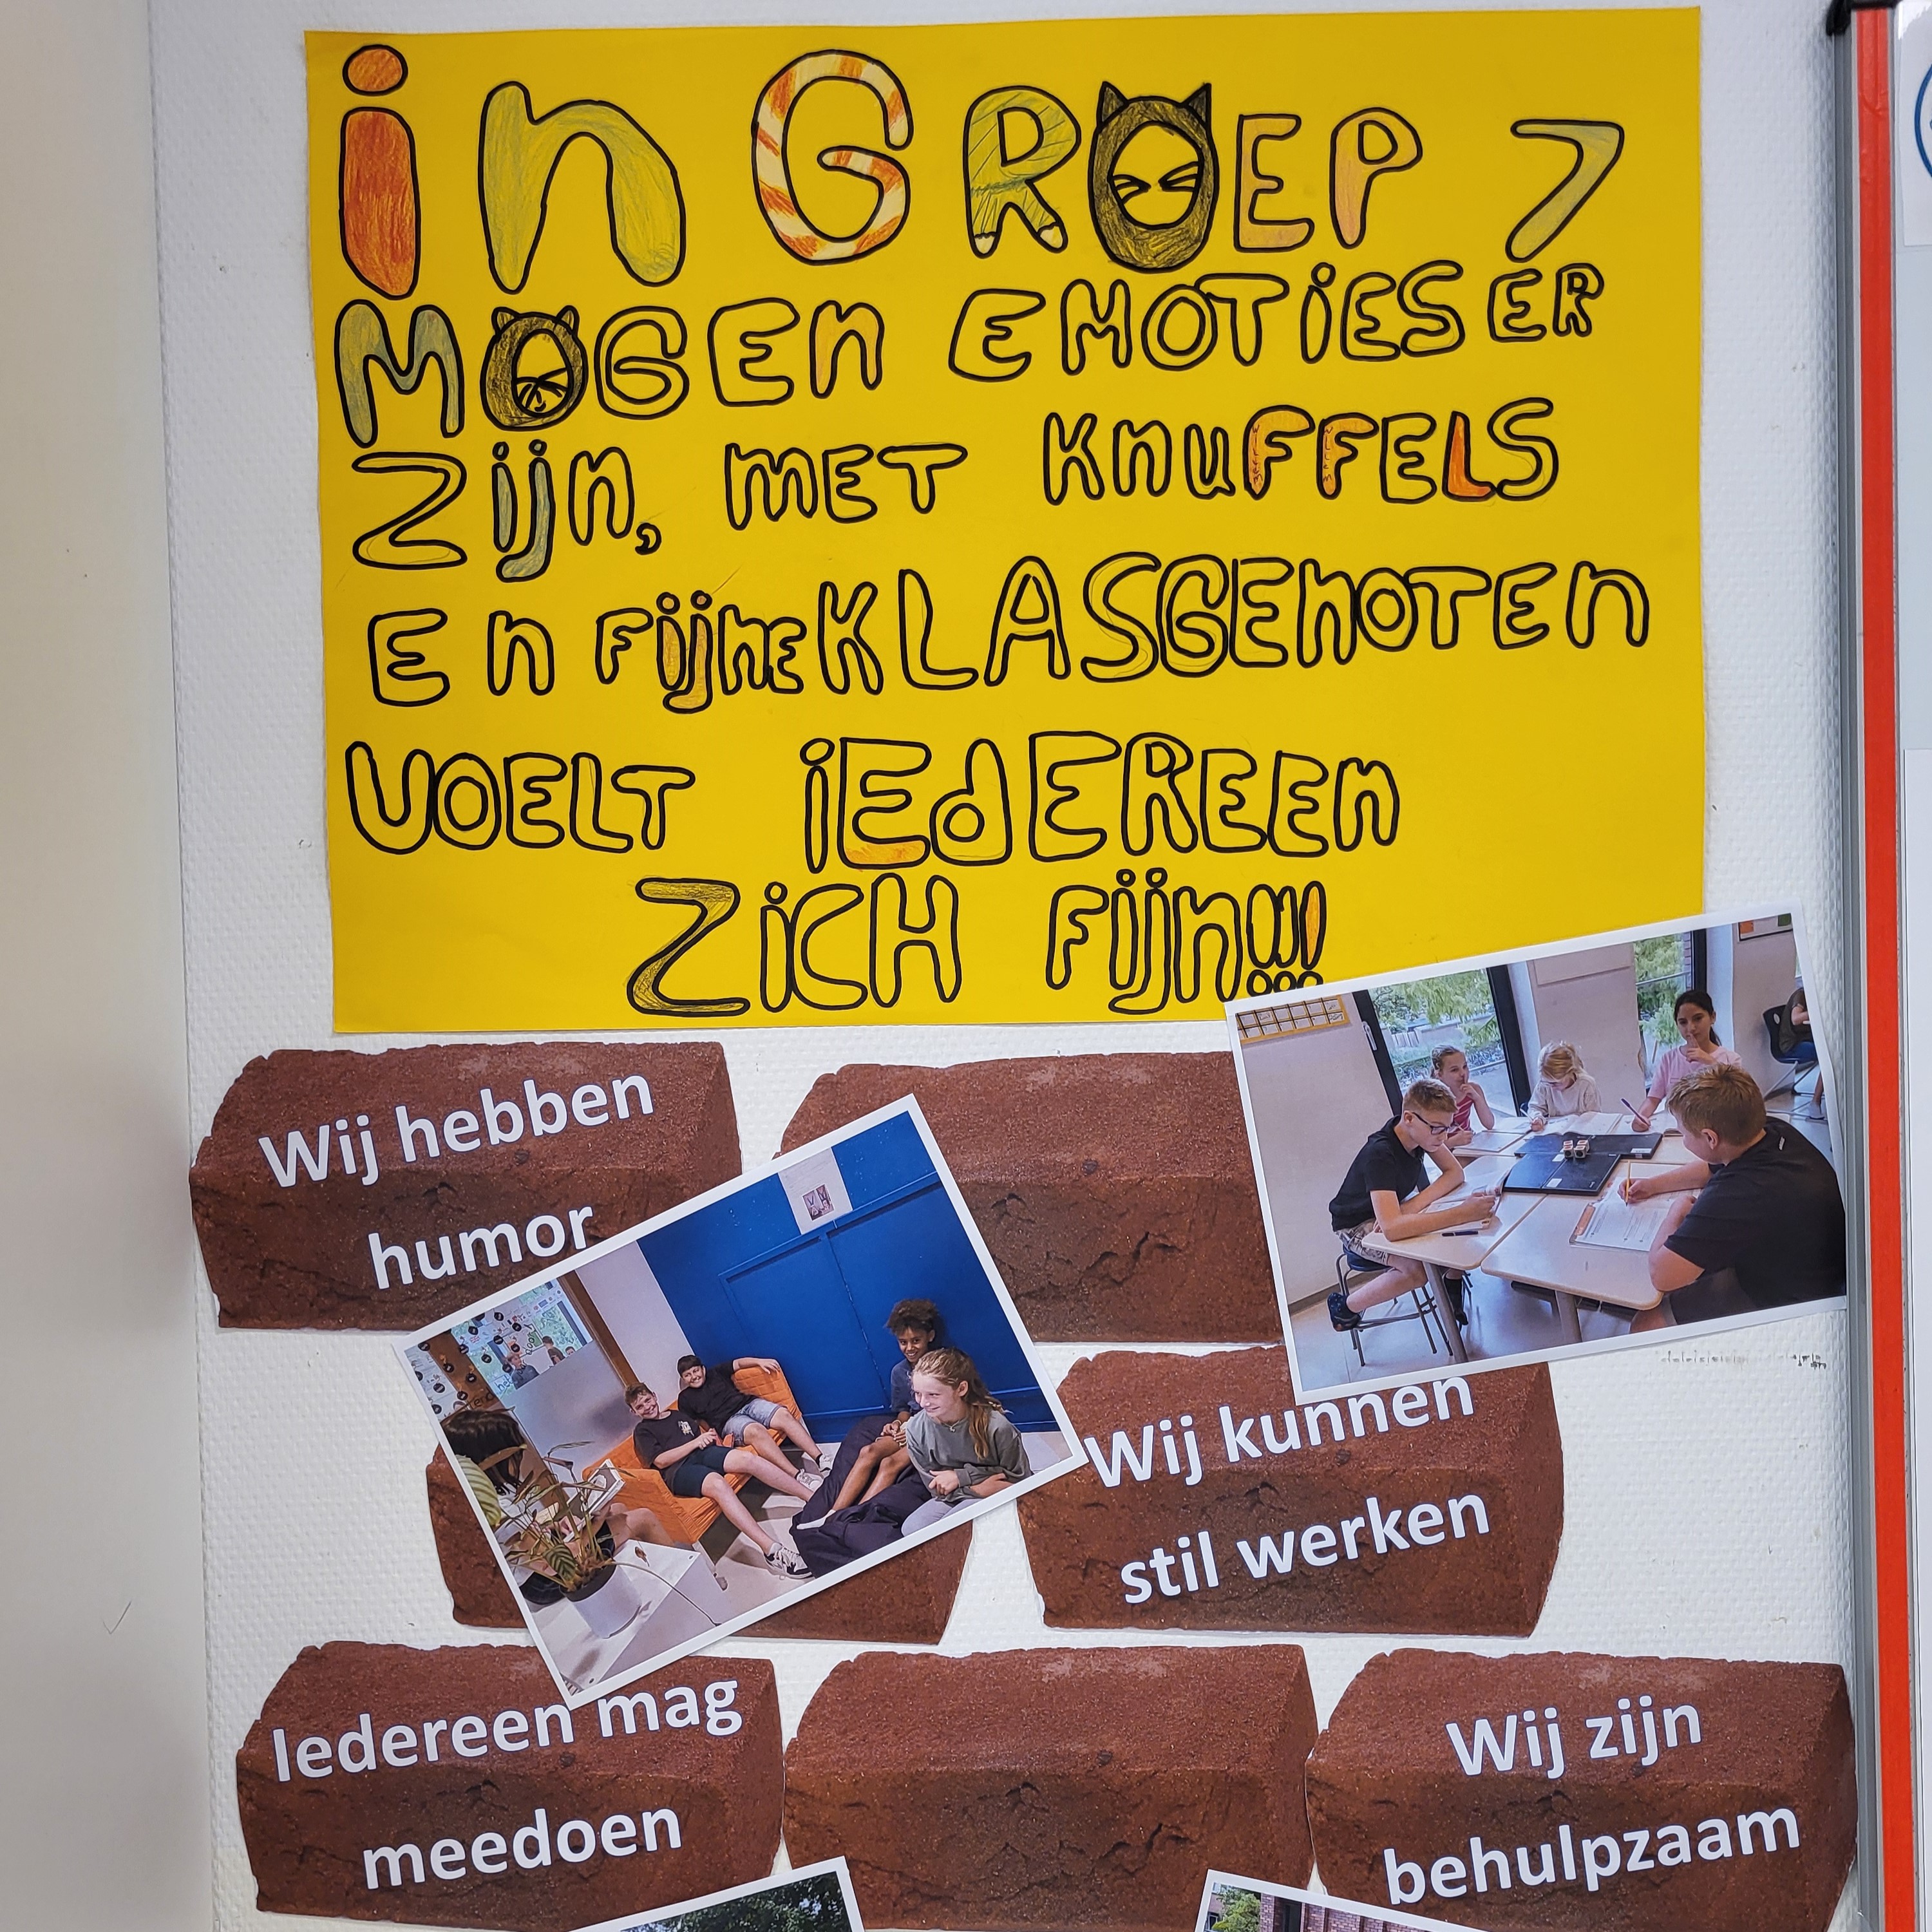 in GROEP 7
MOGEn EMOTiES ER
Zijn, mET KnuFFELS
En Fijne KLASGEnOTEn
VOELT iEdEREEn
ZiCH Fijn!!!
Wij hebben
humor
Wij kunnen
stil werken
Iedereen mag
meedoen
Wij zijn
behulpzaam